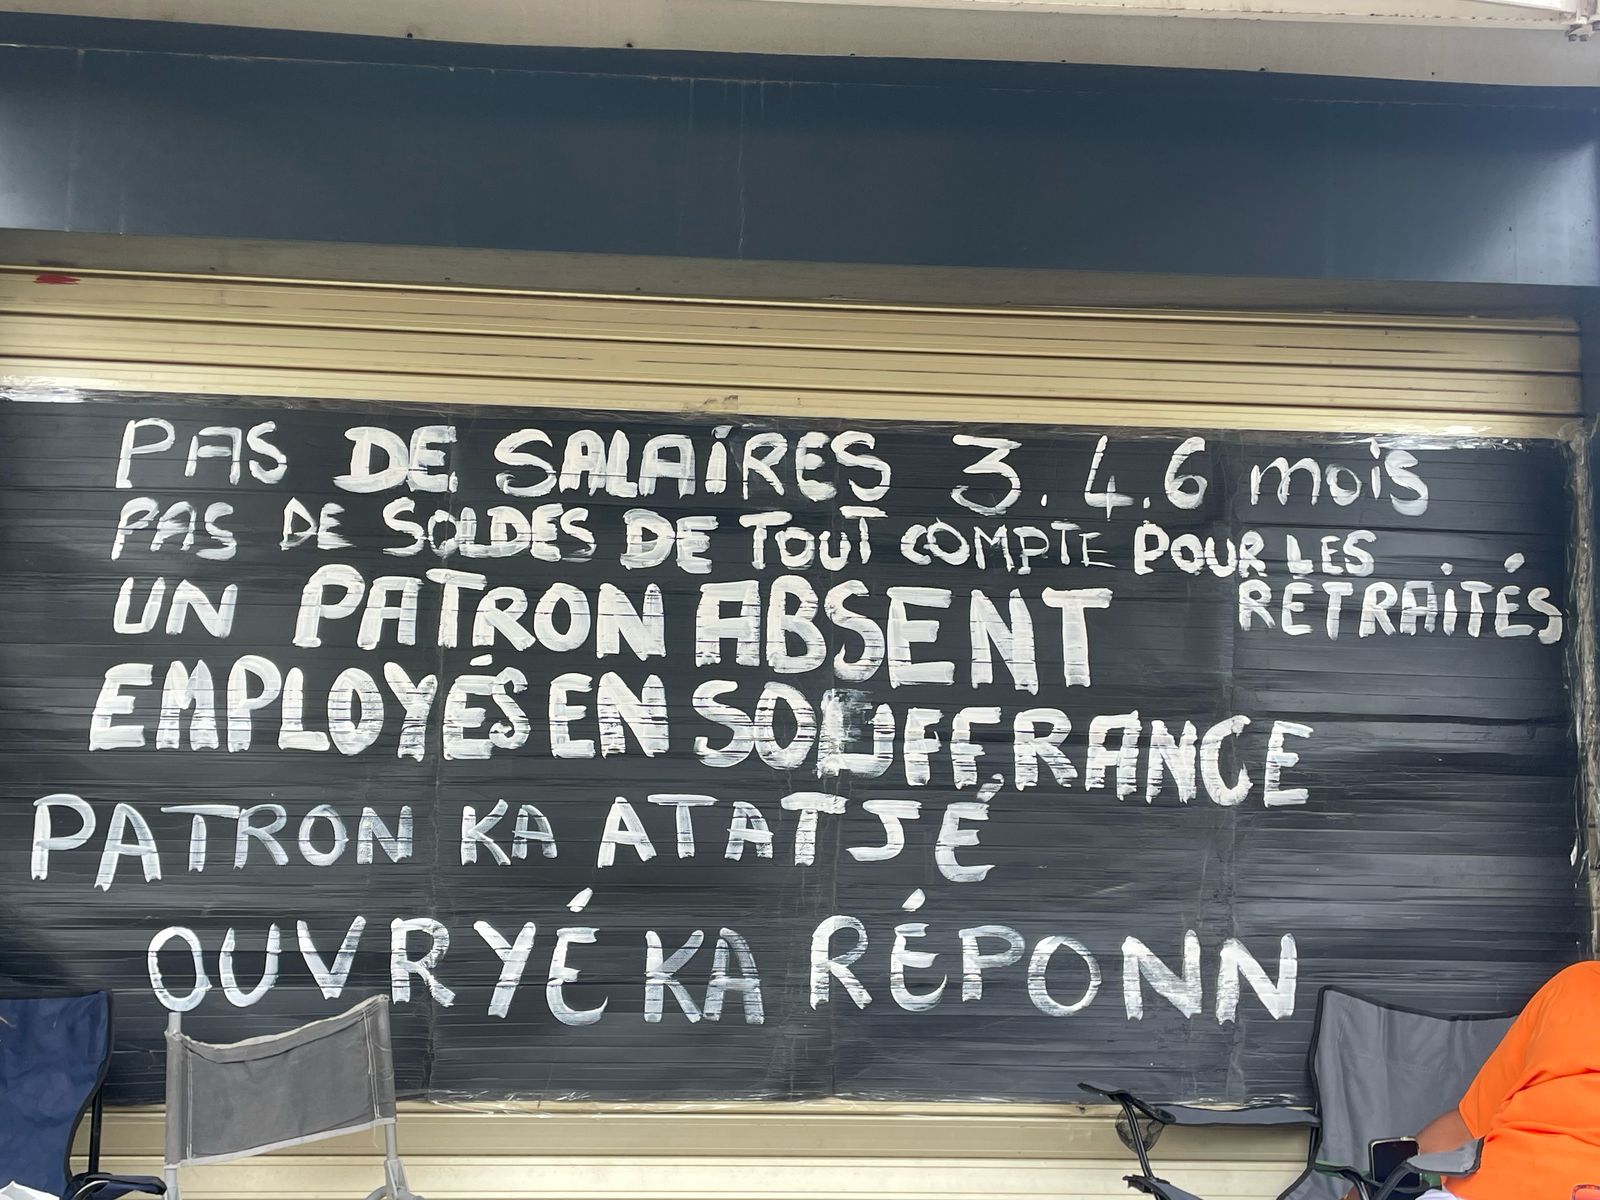 PAS DE SALAiRES 3.4.6 mois
PAS DE SOLDES DE TOUT COMPTE POUR LES
RETRAiTÉS
UN PATRON ABSENT
EMPLOYÉS EN SOUFFRANCE
PATRON KA ATATJÉ
OUVRYÉ KA RÉPONN